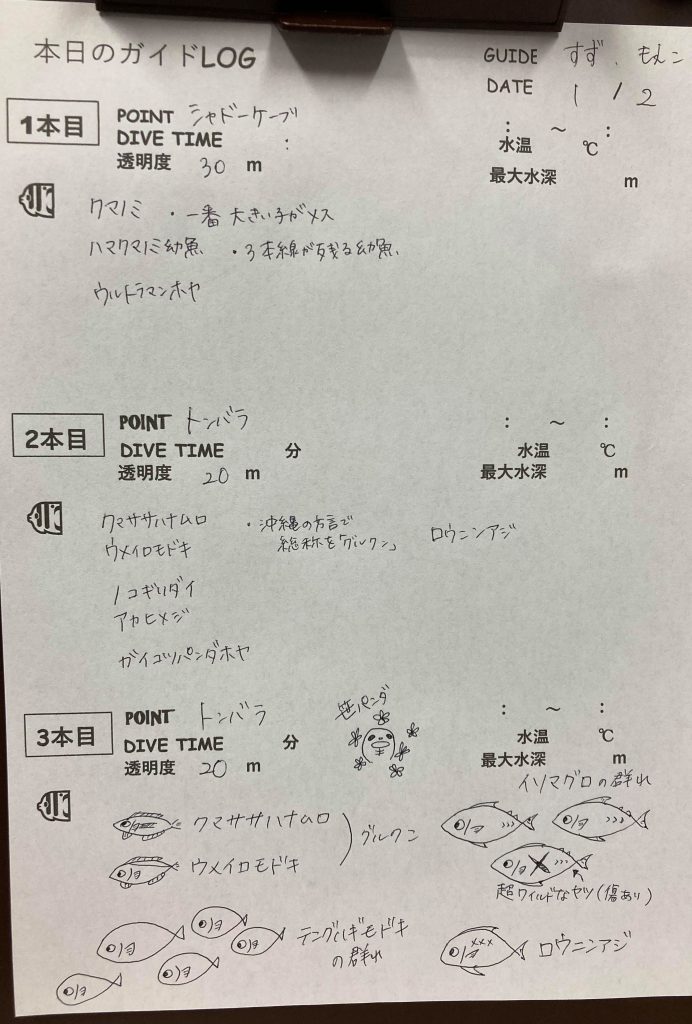 本日のガイドLOG
GUIDE すず、もんこ
DATE 1 / 2
1本目
POINT シャドーケーブ
DIVE TIME :
: ～ :
透明度 30 m
水温 ℃
最大水深 m
クマノミ ・一番大きい子がメス
ハマクマノミ幼魚 ・3本線が残る幼魚
ウルトラマンホヤ
2本目
POINT トンバラ
: ～ :
DIVE TIME 分
水温 ℃
透明度 20 m
最大水深 m
クマササハナムロ ・沖縄の方言で
ウメイロモドキ 総称を「グルクン」
ロウニンアジ
ノコギリダイ
アカヒメジ
ガイコツパンダホヤ
3本目
POINT トンバラ
笹パンダ
: ～ :
DIVE TIME 分
水温 ℃
透明度 20 m
最大水深 m
イソマグロの群れ
クマササハナムロ
グルクン
ウメイロモドキ
超ワイルドなヤツ(傷あり)
テングハギモドキ
の群れ
ロウニンアジ